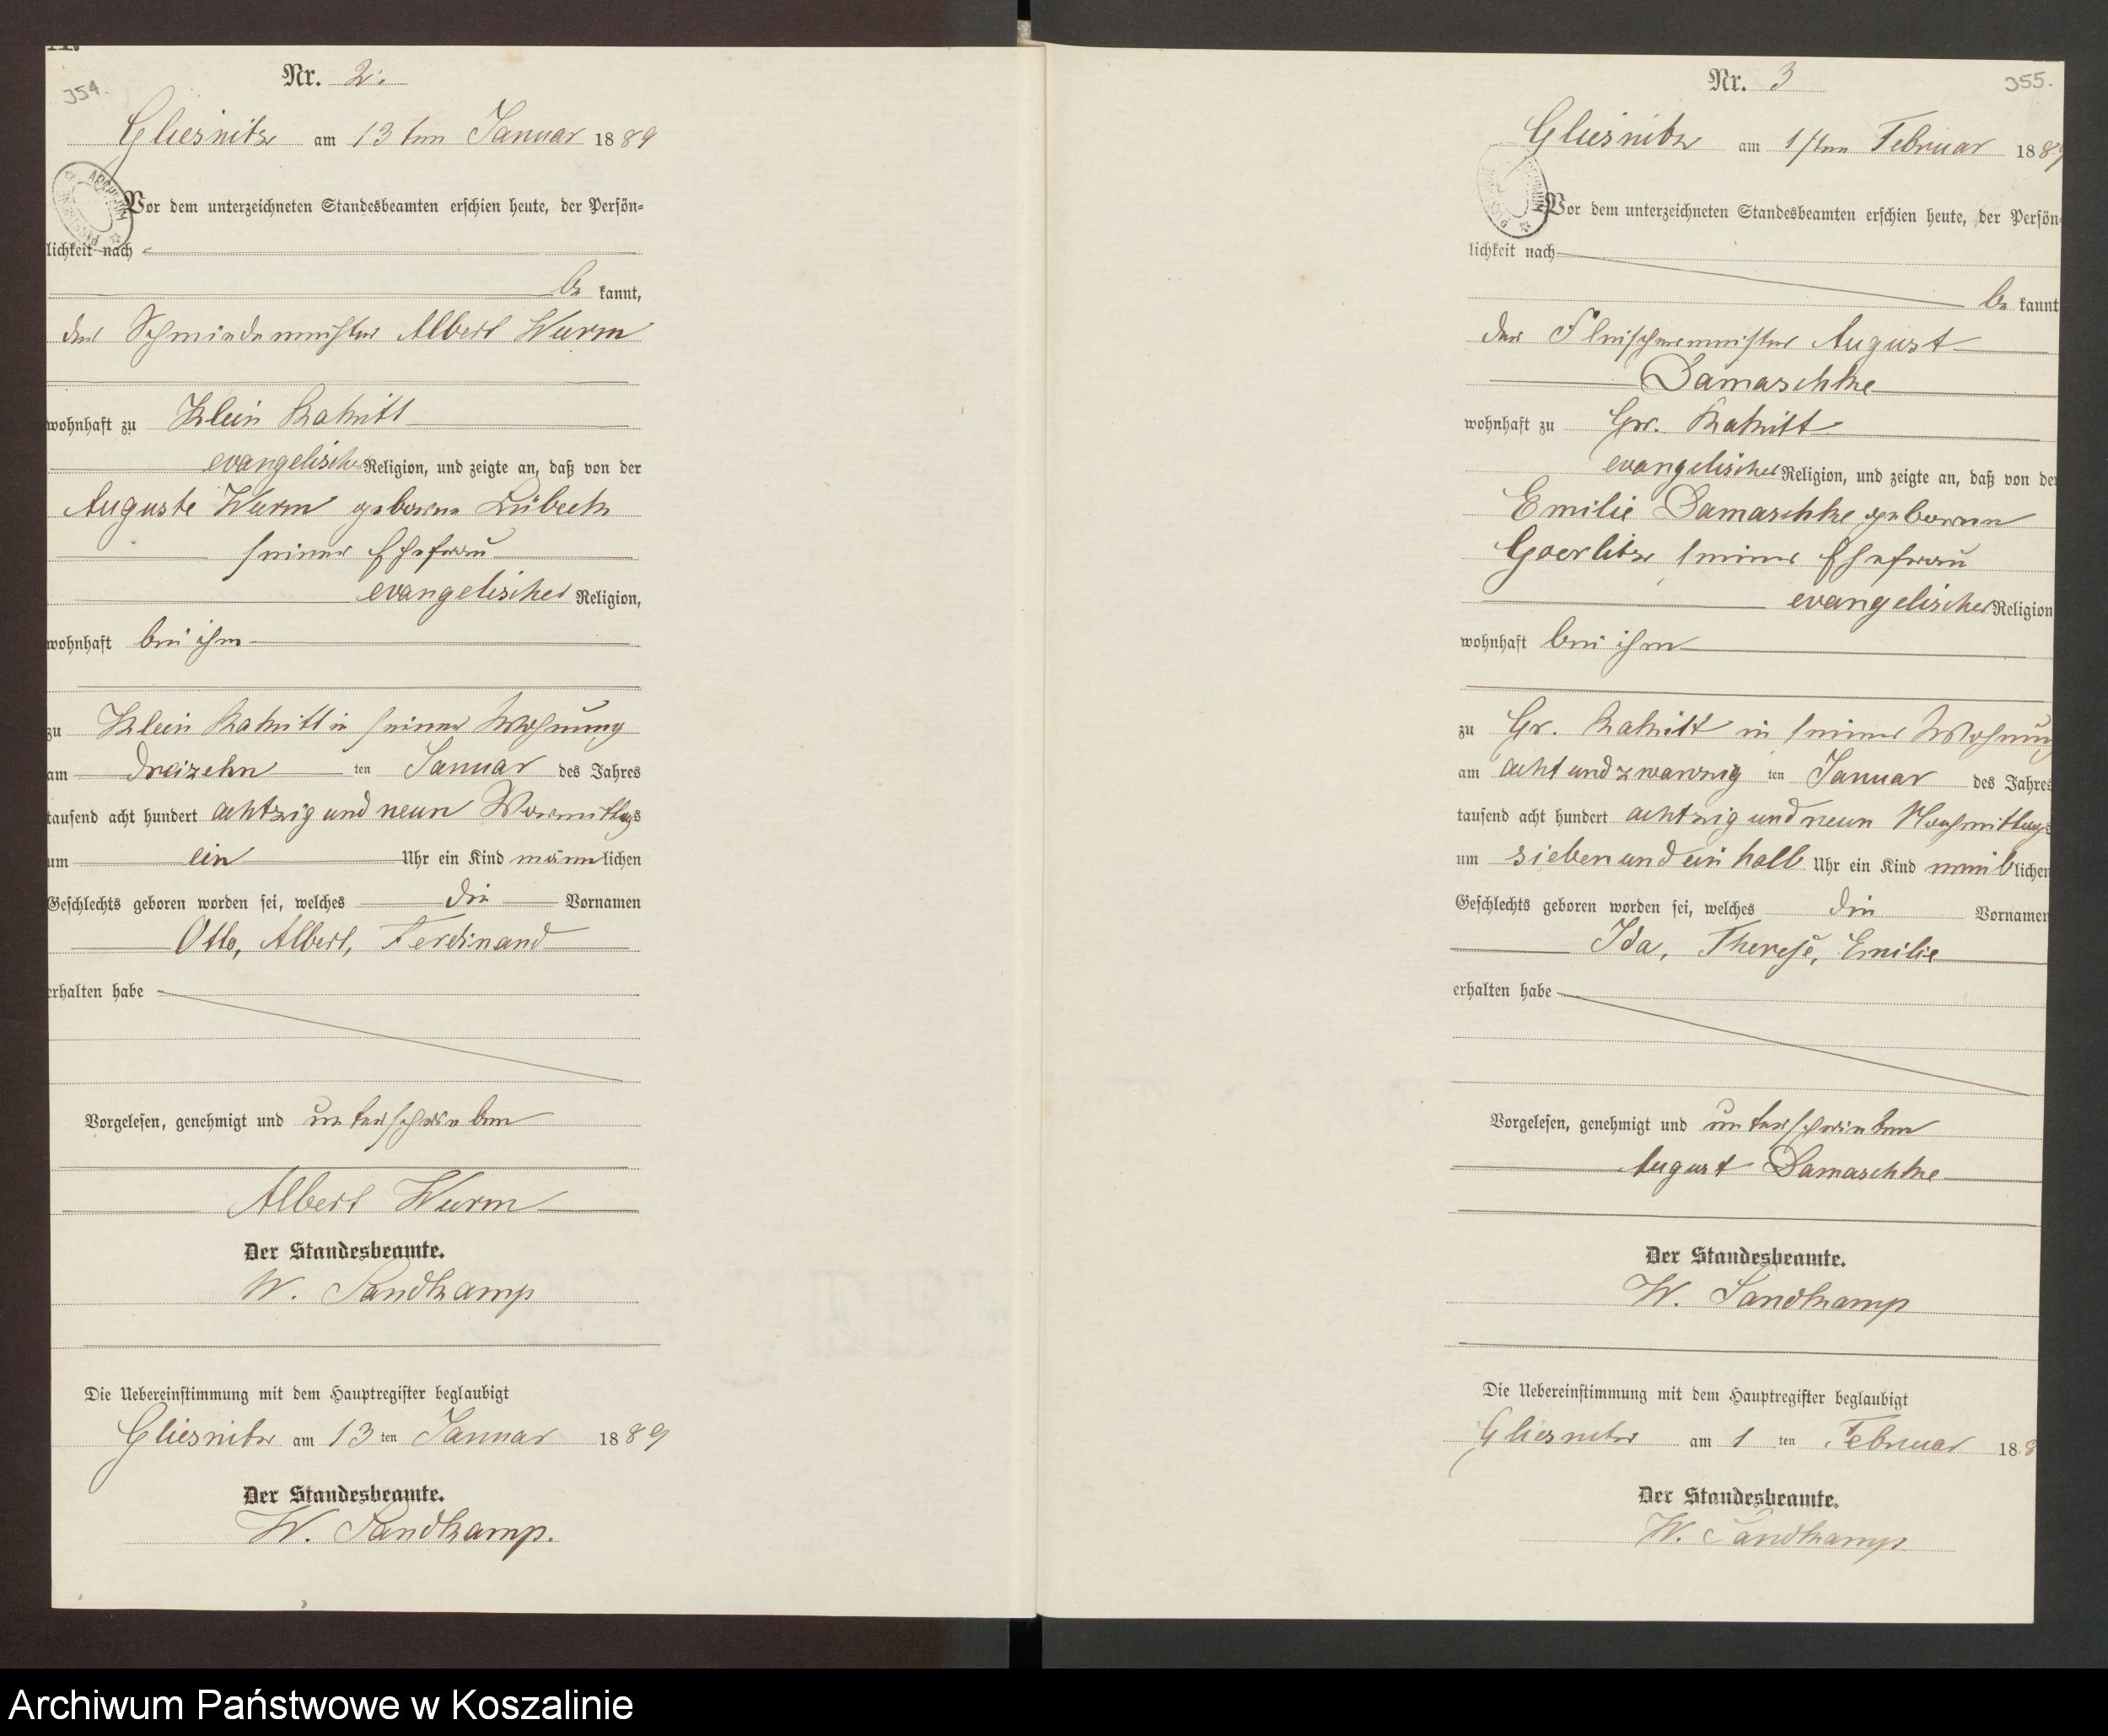 354.
Nr. 2.
Gliesnitz am 13ten Januar 1889
Vor dem unterzeichneten Standesbeamten erschien heute, der Persön=
lichkeit nach
be kannt,
der Schmiedemeister Albert Wurm
wohnhaft zu Klein Rakitt
evangelischer Religion, und zeigte an, daß von der
Auguste Wurm geborene Lübeck
seiner Ehefrau
evangelischer Religion,
wohnhaft bei ihm
zu Klein Rakitt in seiner Wohnung
am dreizehn ten Januar des Jahres
tausend acht hundert achtzig und neun Vormittags
um ein Uhr ein Kind männlichen
Geschlechts geboren worden sei, welches die Vornamen
Otto, Albert, Ferdinand
erhalten habe
Vorgelesen, genehmigt und unterschrieben
Albert Wurm
Der Standesbeamte.
W. Sandkamp
Die Uebereinstimmung mit dem Hauptregister beglaubigt
Gliesnitz am 13 ten Januar 1889
Der Standesbeamte.
W. Sandkamp.
355.
Nr. 3
Gliesnitz am 1sten Februar 1889
Vor dem unterzeichneten Standesbeamten erschien heute, der Persön=
lichkeit nach
be kannt
der Fleischermeister August
Damaschke
wohnhaft zu Gr. Rakitt
evangelischer Religion, und zeigte an, daß von der
Emilie Damaschke geborene
Goerlitz seiner Ehefrau
evangelischer Religion
wohnhaft bei ihm
zu Gr. Rakitt in seiner Wohnung
am acht und zwanzig ten Januar des Jahres
tausend acht hundert achtzig und neun Nachmittags
um sieben und ein halb Uhr ein Kind weiblichen
Geschlechts geboren worden sei, welches die Vornamen
Ida, Therese, Emilie
erhalten habe
Vorgelesen, genehmigt und unterschrieben
August Damaschke
Der Standesbeamte.
W. Sandkamp
Die Uebereinstimmung mit dem Hauptregister beglaubigt
Gliesnitz am 1 ten Februar 188
Der Standesbeamte.
W. Sandkamp
Archiwum Państwowe w Koszalinie